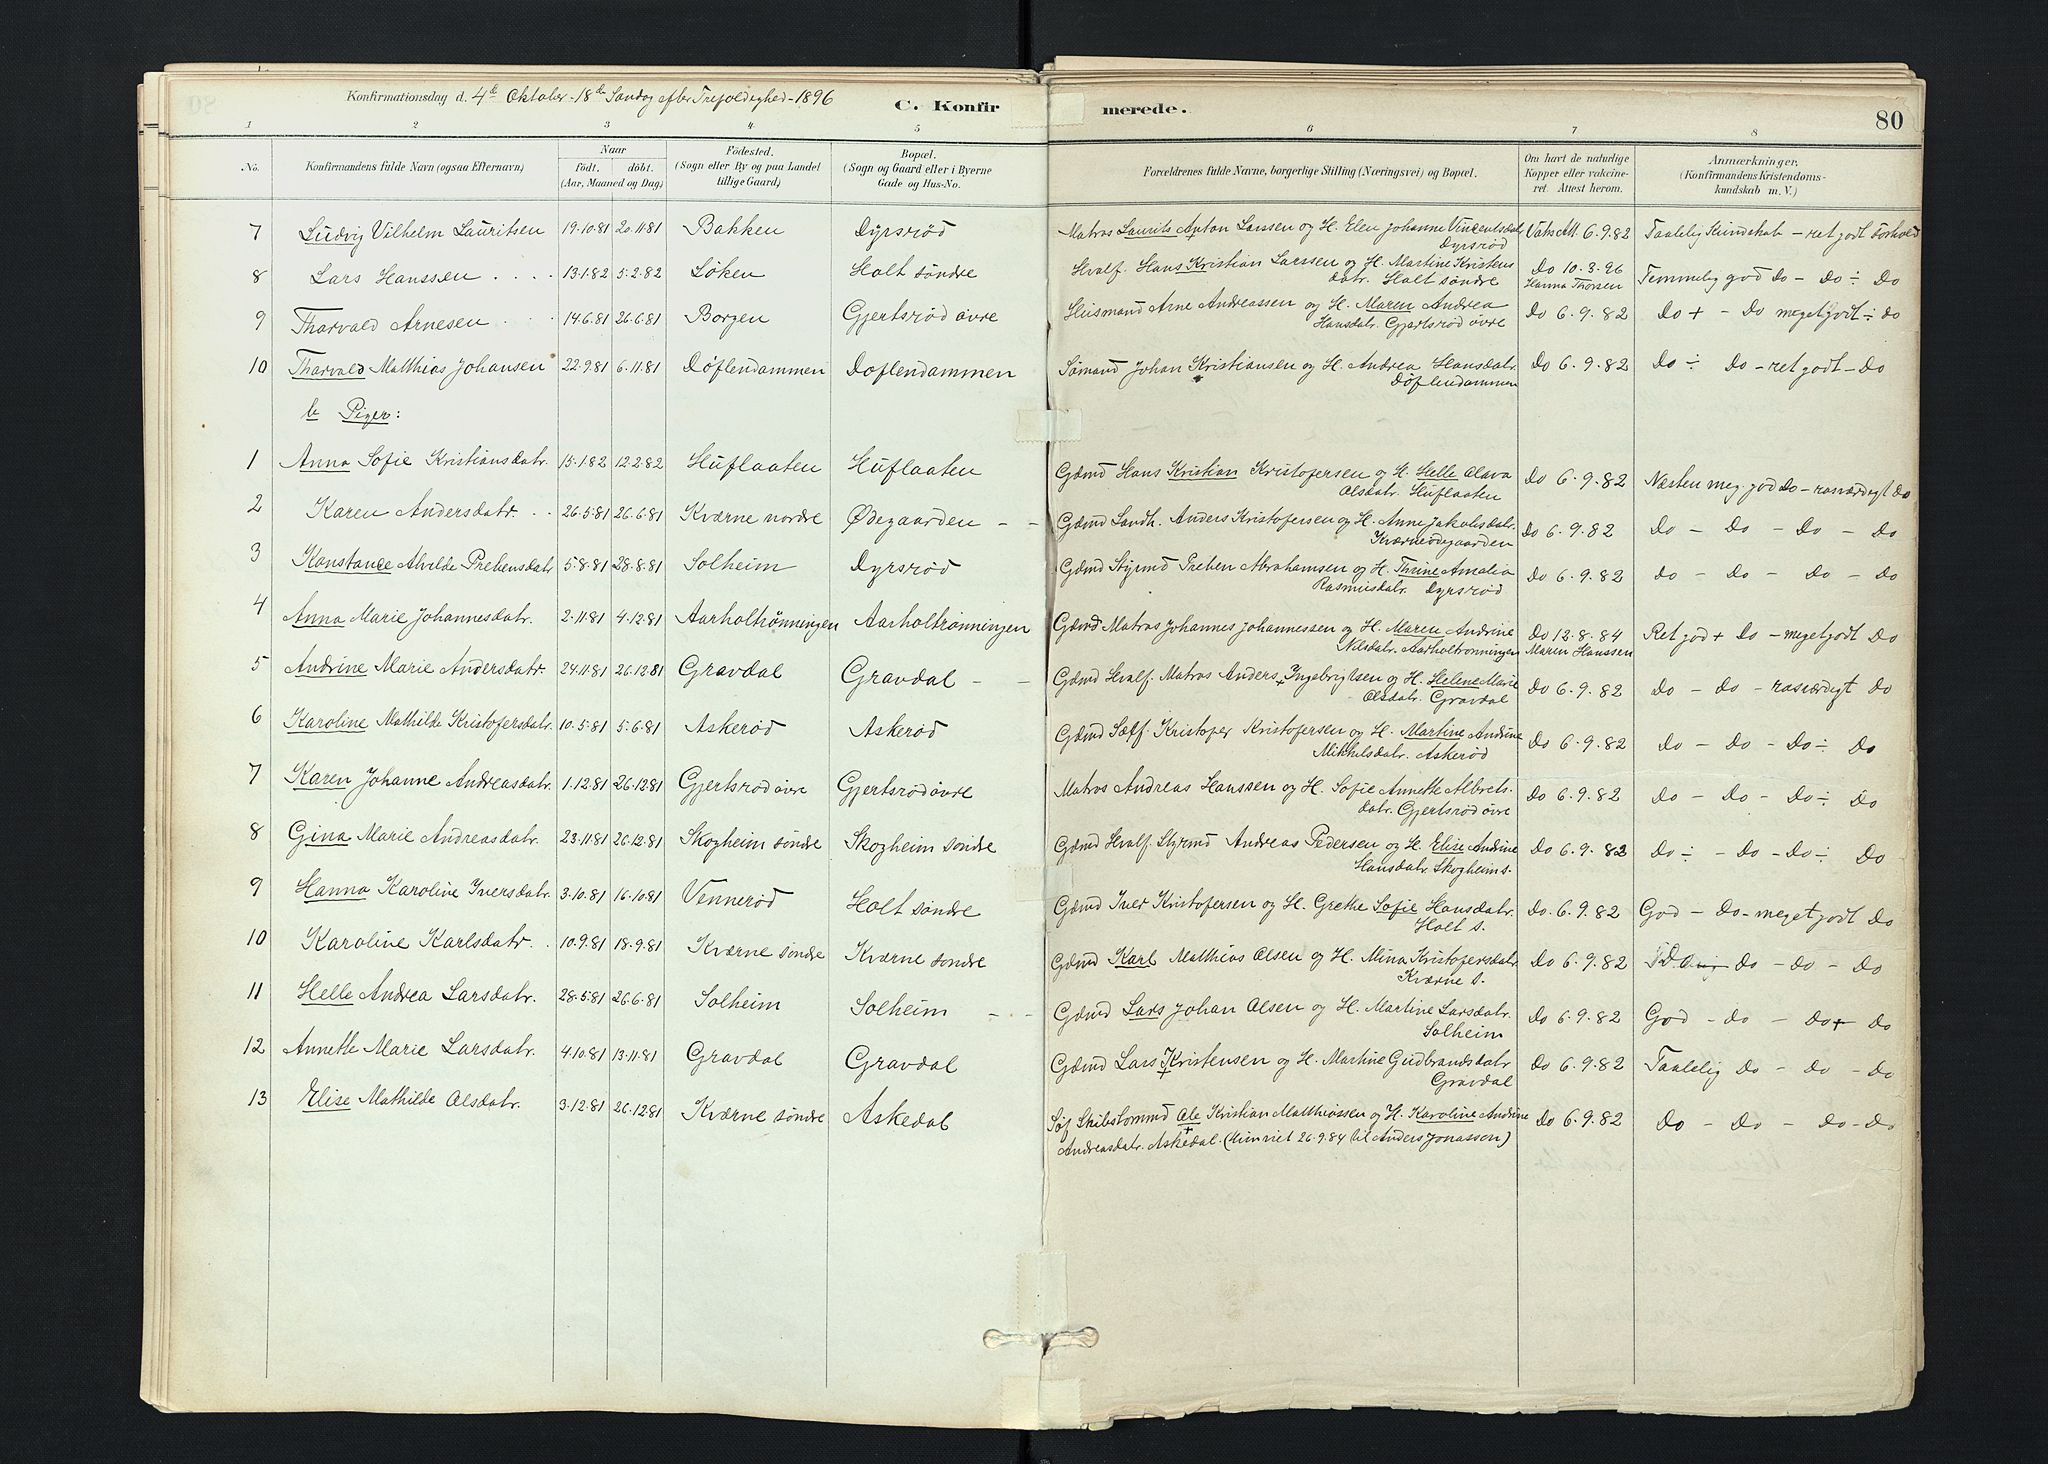 Konfirmationsdag d. 4de Oktober - 18de Søndag efter Trefoldighed - 1896
C. Konfirmerede.
80
1 2 3 4 5 6 7 8
No.
Konfirmandens fulde Navn (ogsaa Efternavn)
Naar
født. døbt.
(Aar, Maaned og Dag.)
Fødested.
(Sogn eller By og paa Landet
tillige Gaard.)
Bopæl.
(Sogn og Gaard eller i Byerne
Gade og Hus-No.
Forældrenes fulde Navne, borgerlige Stilling (Næringsvei) og Bopæl.
Om havt de naturlige
Kopper eller vakcine-
ret. Attest herom.
Anmærkninger,
(Konfirmandens Kristendoms-
kundskab m. V.)
7 Ludvig Vilhelm Lauritsen 19.10.81 20.11.81 Bakken Dyrsrød Matros Laurits Anton Larssen og H. Elen Johanne Vincentsdatr. Vaks Att. 6.9.82 Taalelig Kundskab - ret godt Forhold
Dyrsrød
8 Lars Hanssen 13.1.82 5.2.82 Løken Holt søndre Hvalf. Hans Kristian Larssen og H. Martine Kristens Do 10.3.96 Temmelig god Do - Do ÷ Do
datr. Holt søndre Hanna Thorsen
9 Tharvald Arnesen 14.6.81 26.6.81 Borgen Gjertsrød øvre Husmand Arne Andreassen og H. Maren Andrea Do 6.9.82 Do + - Do meget godt ÷ Do
Hansdatr. Gjertsrød øvre
10 Tharvald Matthias Johansen 22.9.81 6.11.81 Døflendammen Døflendammen Sømand Johan Kristiansen og H. Andrea Hansdatr. Do 6.9.82 Do ÷ Do - ret godt - Do
Døflendammen
b Piger:
1 Anna Sofie Kristiansdatr. 15.1.82 12.2.82 Huflaaten Huflaaten Gdmd Hans Kristian Kristofersen og H. Helle Olava Do 6.9.82 Næsten meg. god Do - rosværdigt Do
Olsdatr. Huflaaten
2 Karen Andersdatr. 26.5.81 26.6.81 Kværne nordre Ødegaarden - - Gdmd Sandh. Anders Kristofersen og H. Anne Jakobsdatr. Do 6.9.82 Do - Do - Do - Do
Kværneødegaarden
3 Konstance Alvilde Prebensdatr 5.8.81 28.8.81 Solheim Dyrsrød Gdmd Styrmd Preben Abrahamsen og H. Thrine Amalia Do 6.9.82 Do - Do - Do - Do
Rasmusdatr. Dyrsrød
4 Anna Marie Johannesdatr. 2.11.81 4.12.81 Aarholtrønningen Aarholtrønningen Gdmd Matros Johannes Johannessen og H. Maren Andrine Do 12.8.84 Ret god + Do - meget godt Do
Nilsdatr. Aarholtrønningen Maren Hanssen
5 Andrine Marie Andersdatr. 24.11.81 26.12.81 Gravdal Gravdal - - Gdmd Hvalf. Matros Anders + Ingebrigtsen og H. Helene Marie Do 6.9.82 Do - Do - rosværdigt Do
Olsdatr. Gravdal
6 Karoline Mathilde Kristofersdatr. 10.5.81 5.6.81 Askerød Askerød Gdmd Sælf. Kristofer Kristofersen og H. Martine Andrine Do 6.9.82 Do - Do - Do ÷ Do
Mikkelsdatr. Askerød
7 Karen Johanne Andreasdatr. 1.12.81 26.12.81 Gjertsrød øvre Gjertsrød øvre Matros Andreas Hanssen og H. Sofie Annette Albrets- Do 6.9.82 Do - Do - Do ÷ Do
datr. Gjertsrød øvre
8 Gina Marie Andreasdatr. 23.11.81 26.12.81 Skogheim søndre Skogheim søndre Gdmd Hvalf. Styrmd Andreas Pedersen og H. Elise Andrine Do 6.9.82 Do ÷ - Do - Do ÷ Do
Hansdatr. Skogheim s.
9 Hanna Karoline Iversdatr. 3.10.81 16.10.81 Vennerød Holt søndre Gdmd Iver Kristofersen og H. Grethe Sofie Hansdatr. Do. 6.9.82 God - Do - meget godt Do
Holt s.
10 Karoline Karlsdatr. 10.9.81 18.9.81 Kværne søndre Kværne søndre Gdmd Karl Matthias Olsen og H. Mina Kristofersdatr. Do 6.9.82 Do - Do - Do
Kværne s.
11 Helle Andrea Larsdatr. 28.5.81 26.6.81 Solheim Solheim - - Gdmd Lars Johan Olsen og H. Martine Larsdatr. Do 6.9.82 God - Do - Do + Do
Solheim
12 Annette Marie Larsdatr. 4.10.81 13.11.81 Gravdal Gravdal Gdmd Lars + Kristensen og H. Martine Gudbrandsdatr Do 6.9.82 Taalelig Do - Do - Do
Gravdal
13 Elise Mathilde Olsdatr. 3.12.81 26.12.81 Kværne søndre Askedal Søf Skibstømmd Ole Kristian Matthiassen og H. Karoline Andrine Do 6.9.82 Do - Do - Do - Do
Andreasdatr. Askedal. (Hun viet 26.9.84 til Anders Jonassen)